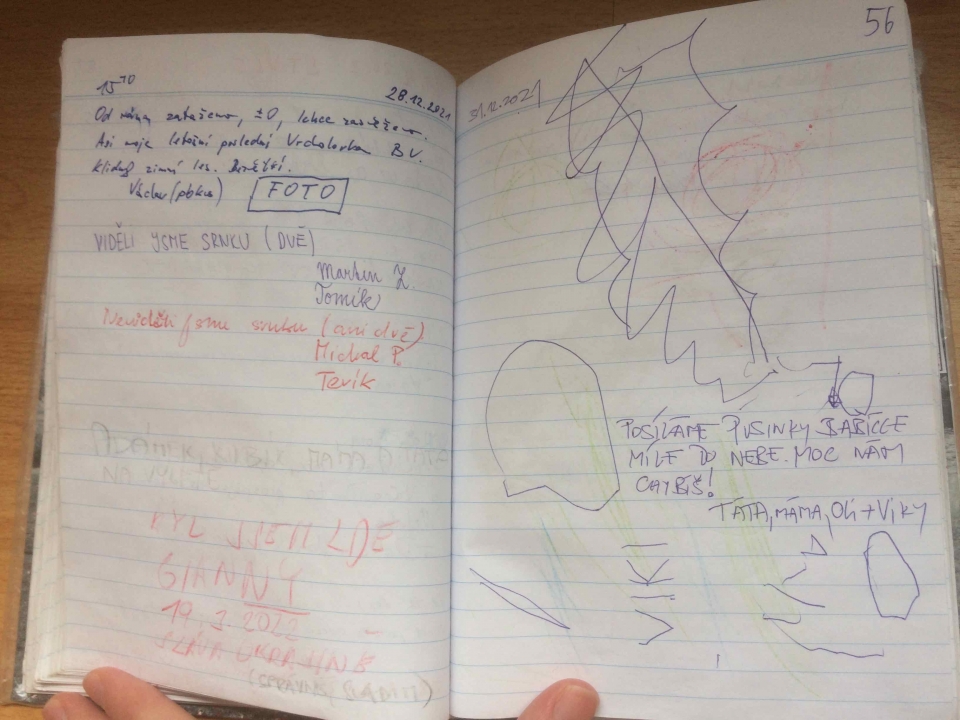 15 10
28.12.2021
Od rána zataženo, ±0, lehce zasněženo.
Asi moje letošní poslední Vrcholovka BV.
Klidný zimní les.
Václav
FOTO
VIDĚLI JSME SRNKU (DVĚ)
Martin Z.
Tomík
Neviděli jsme srnku (ani dvě)
Michal P.
Terík
MÁMA A TÁTA
NA
BYL JSEM ZDE
GIANNY
19.3.2022
SLÁVA UKRAJINE
56
31.12.2021
POSÍLÁME PUSINKY BABIČCE
MÍLE DO NEBE. MOC NÁM
CHYBÍŠ!
TÁTA, MÁMA, Oli + Viky